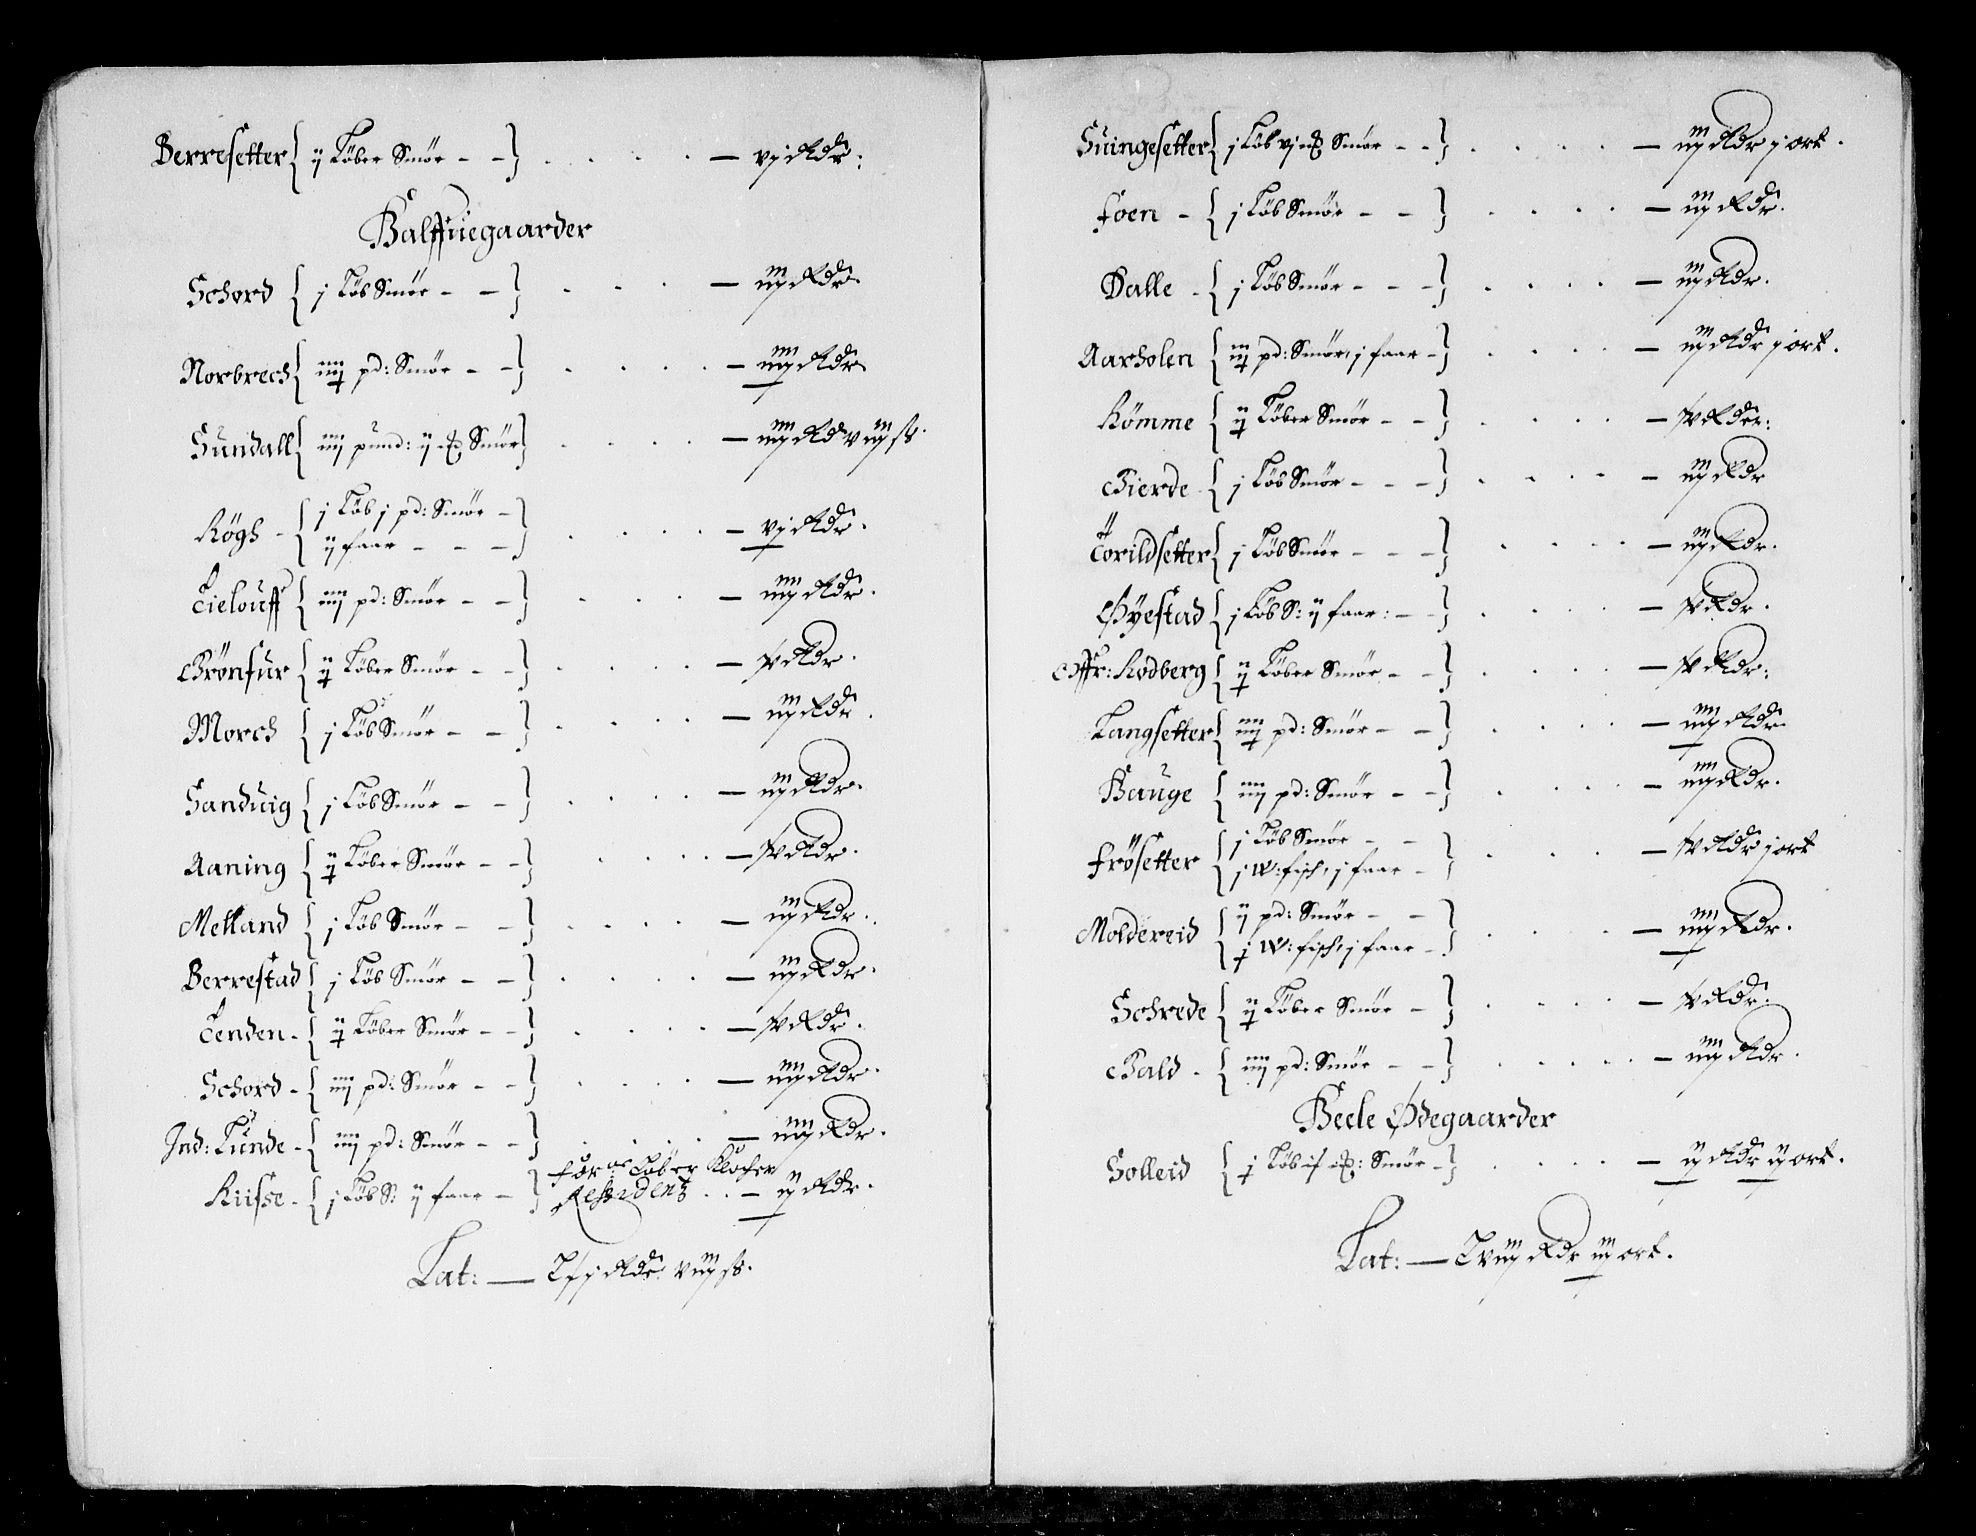 Berresetter { ij Løber Smør - - } — vj Rdr:
Halffuegaarder
Schord { j Løb Smør - - } — iij Rdr.
Norbrech { iiij pd: Smør - - } — iiij Rdr
Sundall { iiij pund: ij Smør } — iiij Rdr viij ß.
Høgh - { j Løb j pd: Smør -
ij faar - - - } — vj Rdr.
Tielouff { iiij pd: Smør - - } — iiij Rdr.
Grønfur { ij Løber Smør - - } — Rdr.
Morch { j Løb Smør - - } — iij Rdr.
Sanduig { j Løb Smør - - } — iij Rdr.
Aaning { ij Løber Smør - - } — Rdr.
Melland { j Løb Smør - - } — iij Rdr.
Berrestad { j Løb Smør - - } — iij Rdr.
Tenden - { ij Løber Smør - - } — Rdr.
Schord - { iiij pd: Smør - - } — iiij Rdr.
Ind: Lunde - { iiij pd: Smør - - } — iiij Rdr.
Husse - { j Løb S: ij faar - } Løber Klocher
Residentz . . — ij Rdr.
Lat: — Rdr: viij ß.
Suingesetter { j Løb vj Smør - - } — iij Rdr j ort.
Foen - { j Løb Smør - - } — iij Rdr.
Dalle - { j Løb Smør - - - } — iij Rdr.
Aarholen { iij pd: Smør, j faar - } — iij Rdr j ort.
Hømme { ij Løber Smør - - } — Rdr:
Gierde - { j Løb Smør - - - } — iij Rdr
Torildsetter { j Løb Smør - - - } — iij Rdr.
Øyestad { j Løb S: ij faar: - - } — Rdr.
Offr: Rødberg { ij Løber Smør - - } — Rdr:
Langsetter { iiij pd: Smør - - } — iiij Rdr.
Hauge { iiij pd: Smør - - } — iiij Rdr.
Frøsetter { j Løb Smør - -
j W: fisch, j faar - } — Rdr j ort
Moldereid { ij pd: Smør - -
j W: fisch, j faar - } — iiij Rdr.
Schrede { ij Løber Smør - } — Rdr.
Hald - { iiij pd: Smør - - } — iiij Rdr.
Heele Ødegaarder
Solleid { j Løb Smør - } — ij Rdr ij ort.
Lat: — Rdr iij ort.